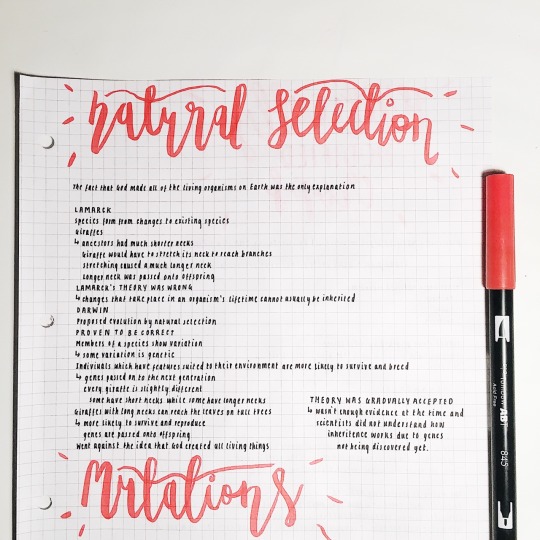 natural selection
The fact that God made all of the living organisms on Earth was the only explanation
LAMARCK
species form from changes to existing species
Giraffes
↳ ancestors had much shorter necks
Giraffe would have to stretch its neck to reach branches
stretching caused a much longer neck
longer neck was passed onto offspring
LAMARCK'S THEORY WAS WRONG
↳ changes that take place in an organism's lifetime cannot usually be inherited
DARWIN
Proposed evolution by natural selection
PROVEN TO BE CORRECT
Members of a species show variation
↳ some variation is genetic
Individuals which have features suited to their environment are more likely to survive and breed
↳ genes passed on to the next generation
every giraffe is slightly different
some have short necks whilst some have longer necks
Giraffes with long necks can reach the leaves on tall trees
↳ more likely to survive and reproduce
genes are passed onto offspring
went against the idea that God created all living things
THEORY WAS GRADUALLY ACCEPTED
↳ wasn't enough evidence at the time and
scientists did not understand how
inheritence works due to genes
not being discovered yet.
Mutations
ABT
845